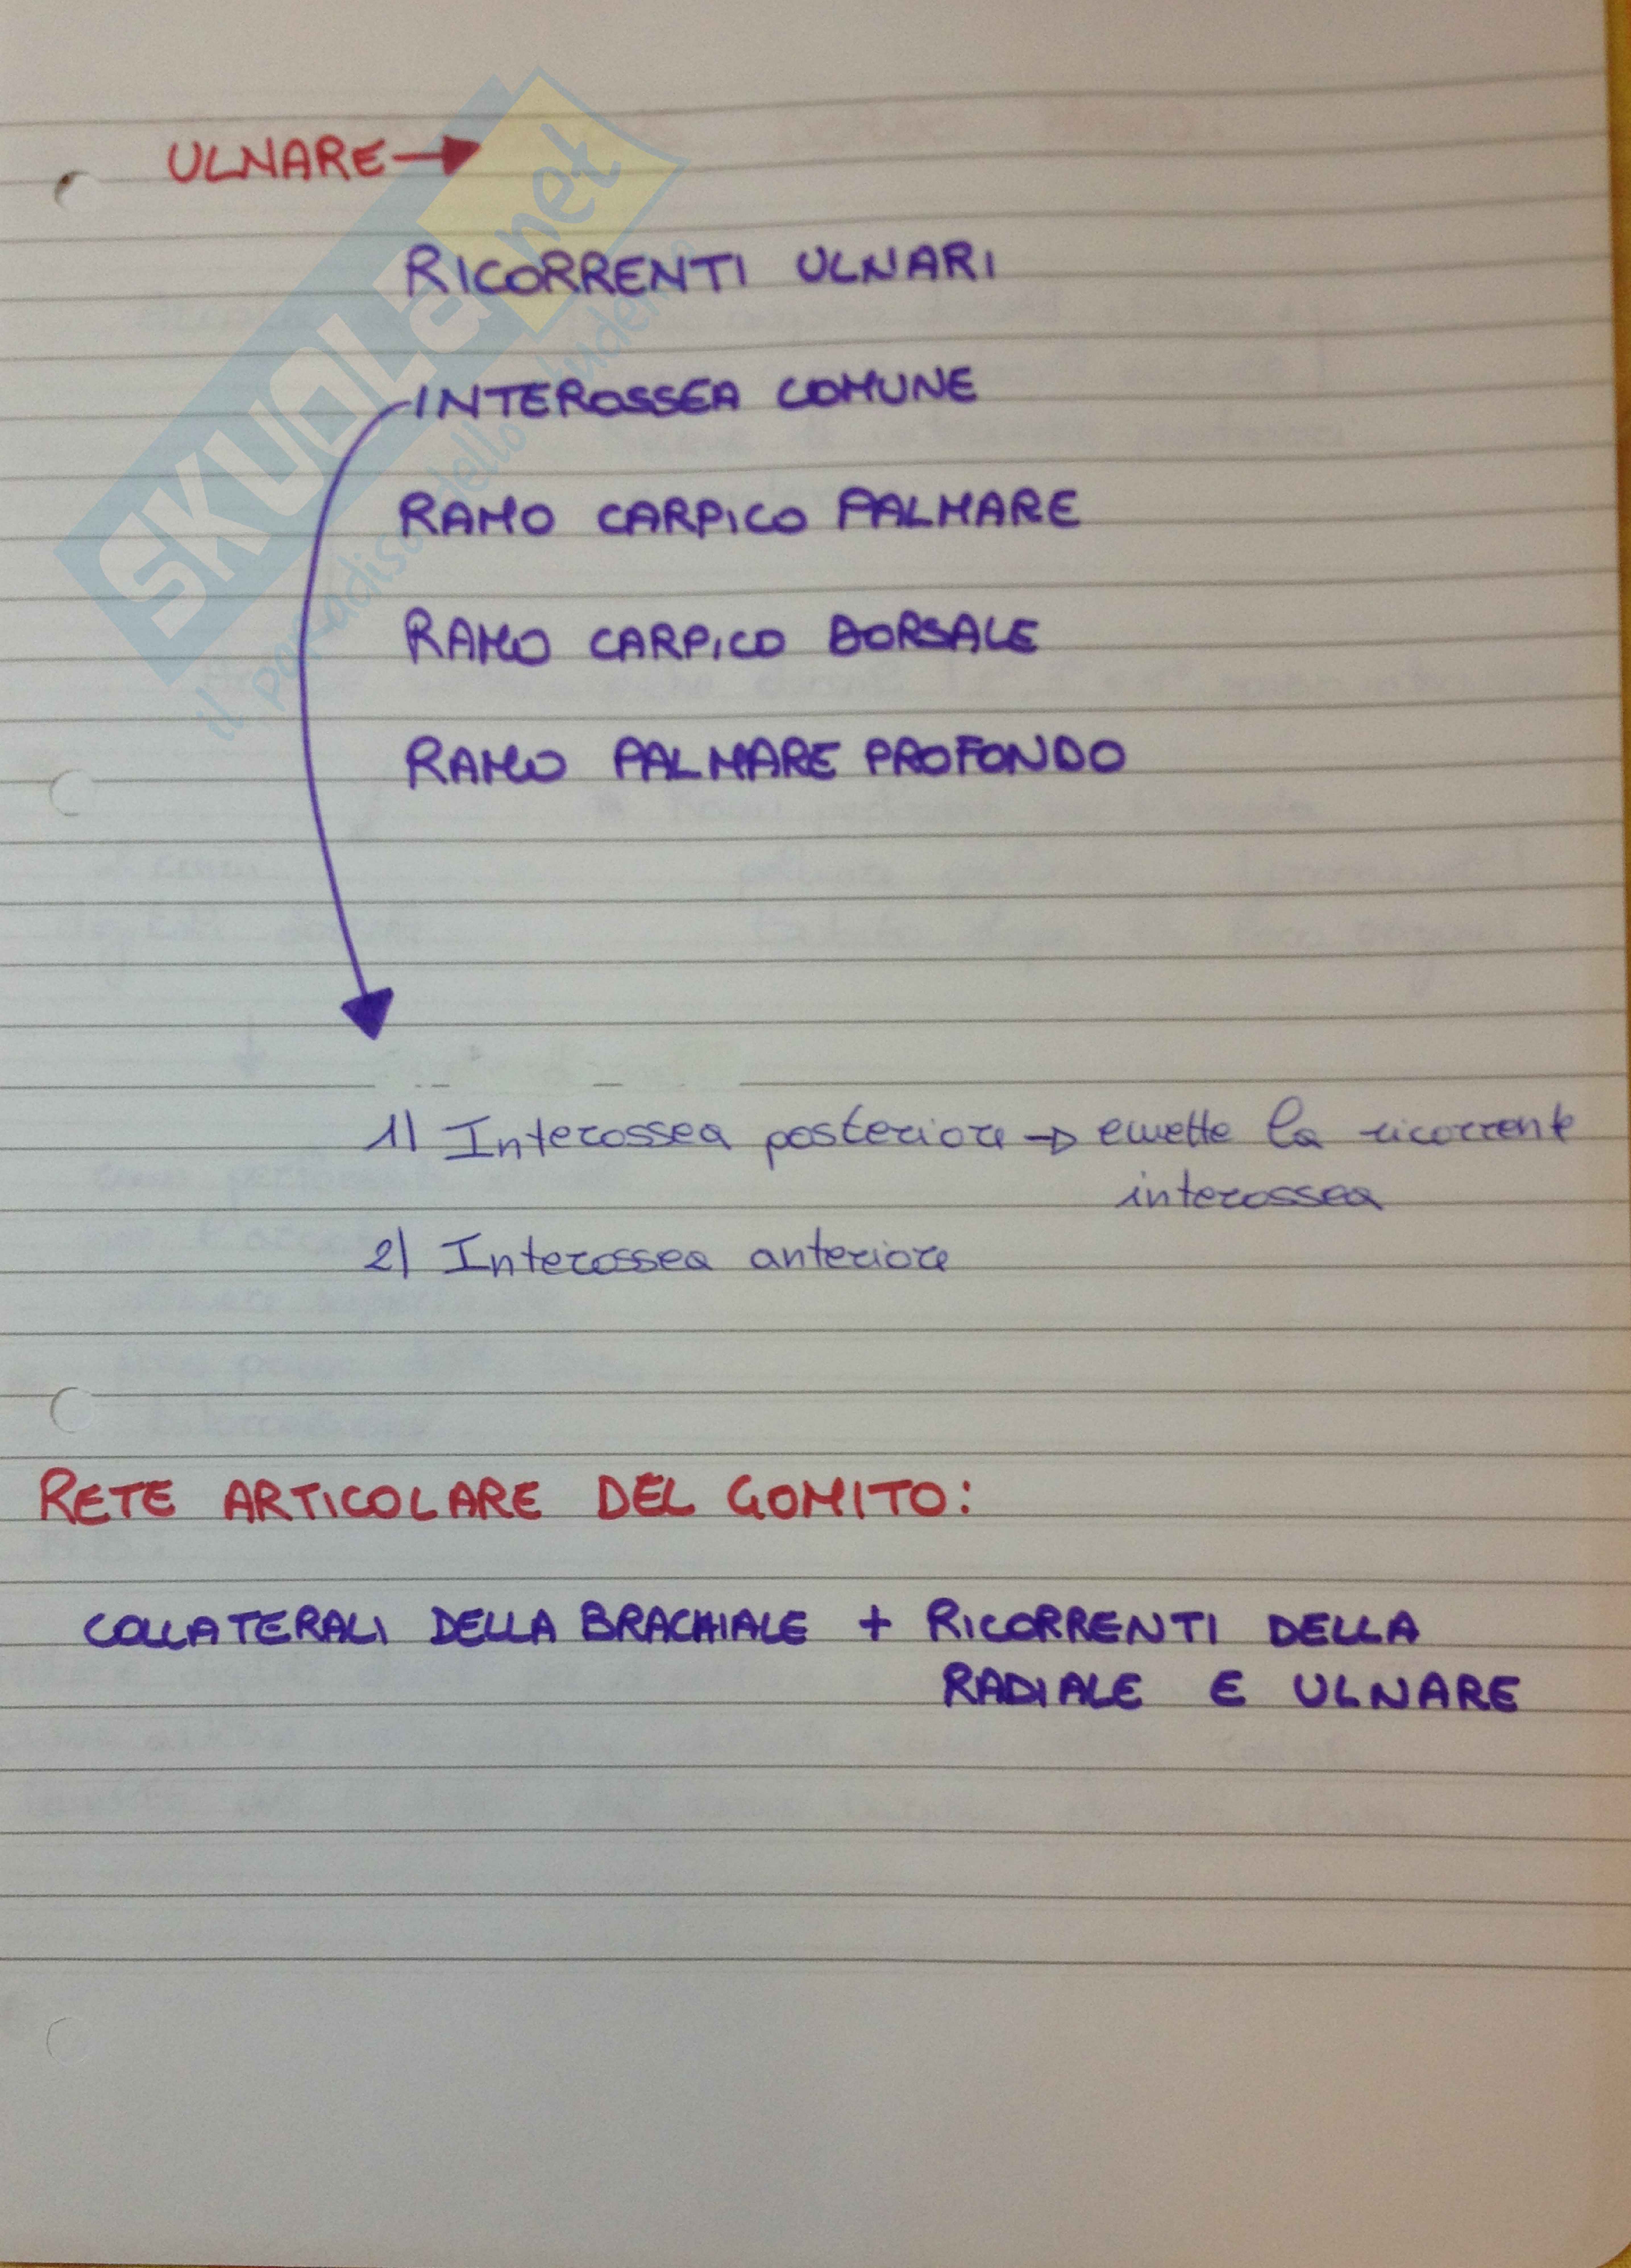 ULNARE →
RICORRENTI ULNARI
INTEROSSEA COMUNE
RAMO CARPICO PALMARE
RAMO CARPICO DORSALE
RAMO PALMARE PROFONDO
1) Interossea posteriore → emette la ricorrente
interossea
2) Interossea anteriore
RETE ARTICOLARE DEL GOMITO:
COLLATERALI DELLA BRACHIALE + RICORRENTI DELLA
RADIALE E ULNARE
SKUOLA.net
il paradiso dello studente